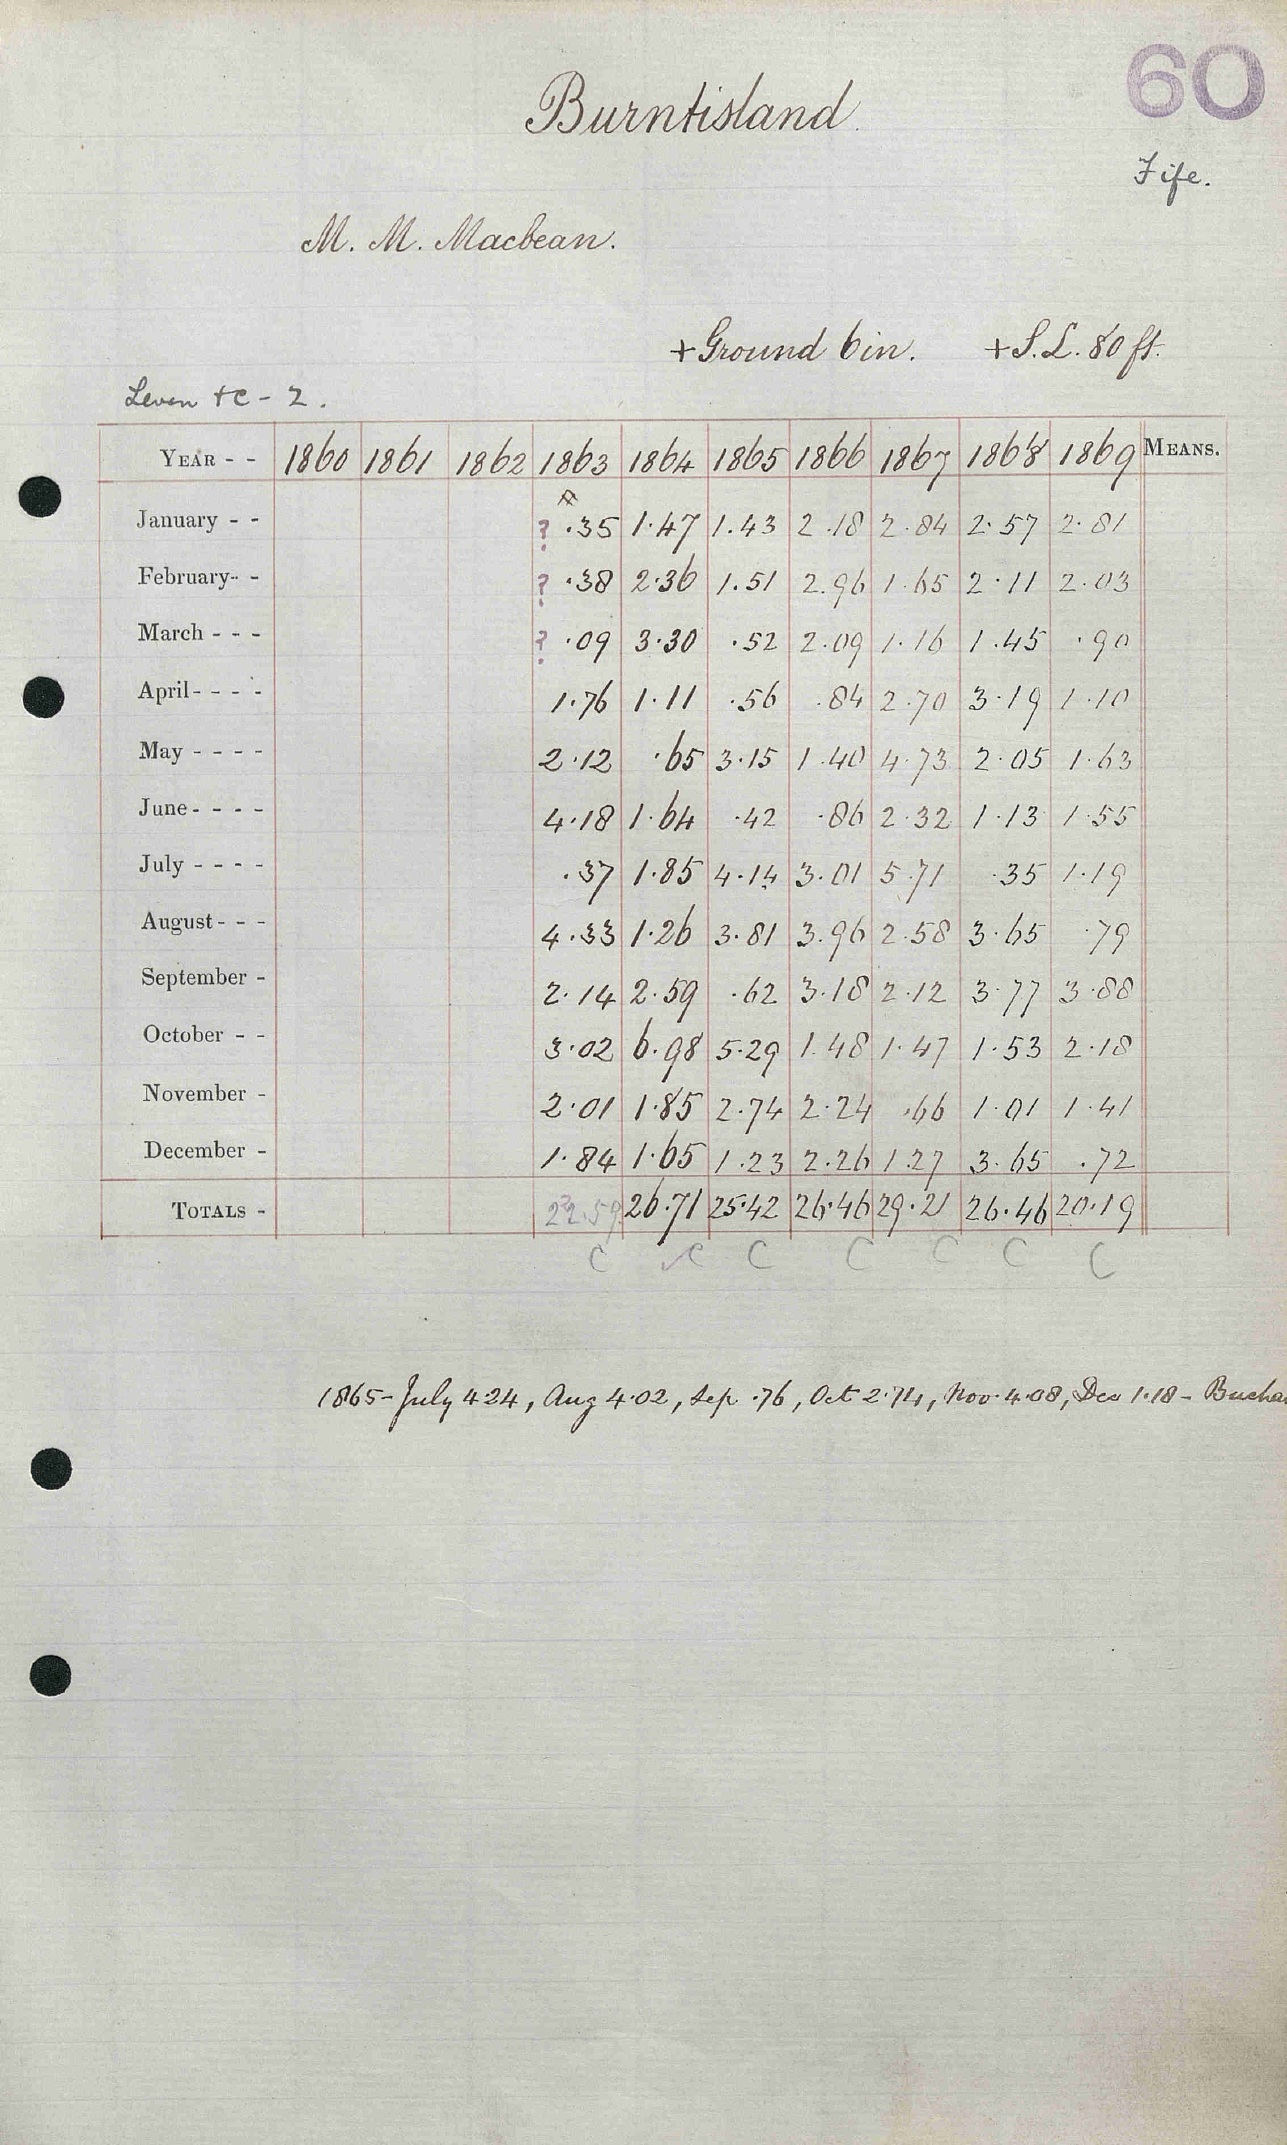 60
Burntisland
Fife.
M. M. Macbean.
+Ground 6in. +S.L. 80 ft.
Leven +c - 2.
YEAR - - 1860 1861 1862 1863 1864 1865 1866 1867 1868 1869 MEANS.
January - - ? .35 1.47 1.43 2.18 2.84 2.57 2.81
February - - ? .38 2.36 1.51 2.96 1.65 2.11 2.03
March - - - ? .09 3.30 .52 2.09 1.16 1.45 .90
April - - - - 1.76 1.11 .56 .84 2.70 3.19 1.10
May - - - - 2.12 .65 3.15 1.40 4.73 2.05 1.63
June - - - - 4.18 1.64 .42 .86 2.32 1.13 1.55
July - - - - .37 1.85 4.14 3.01 5.71 .35 1.19
August - - - 4.33 1.26 3.81 3.96 2.58 3.65 .79
September - 2.14 2.59 .62 3.18 2.12 3.77 3.88
October - - 3.02 6.98 5.29 1.48 1.47 1.53 2.18
November - 2.01 1.85 2.74 2.24 .66 1.01 1.41
December - 1.84 1.65 1.23 2.26 1.27 3.65 .72
TOTALS - 22.59 26.71 25.42 26.46 29.21 26.46 20.19
C C C C C C C
1865 - July 4.24, Aug 4.02, Sep .76, Oct 2.74, Nov. 4.08, Dec 1.18 - Buchan